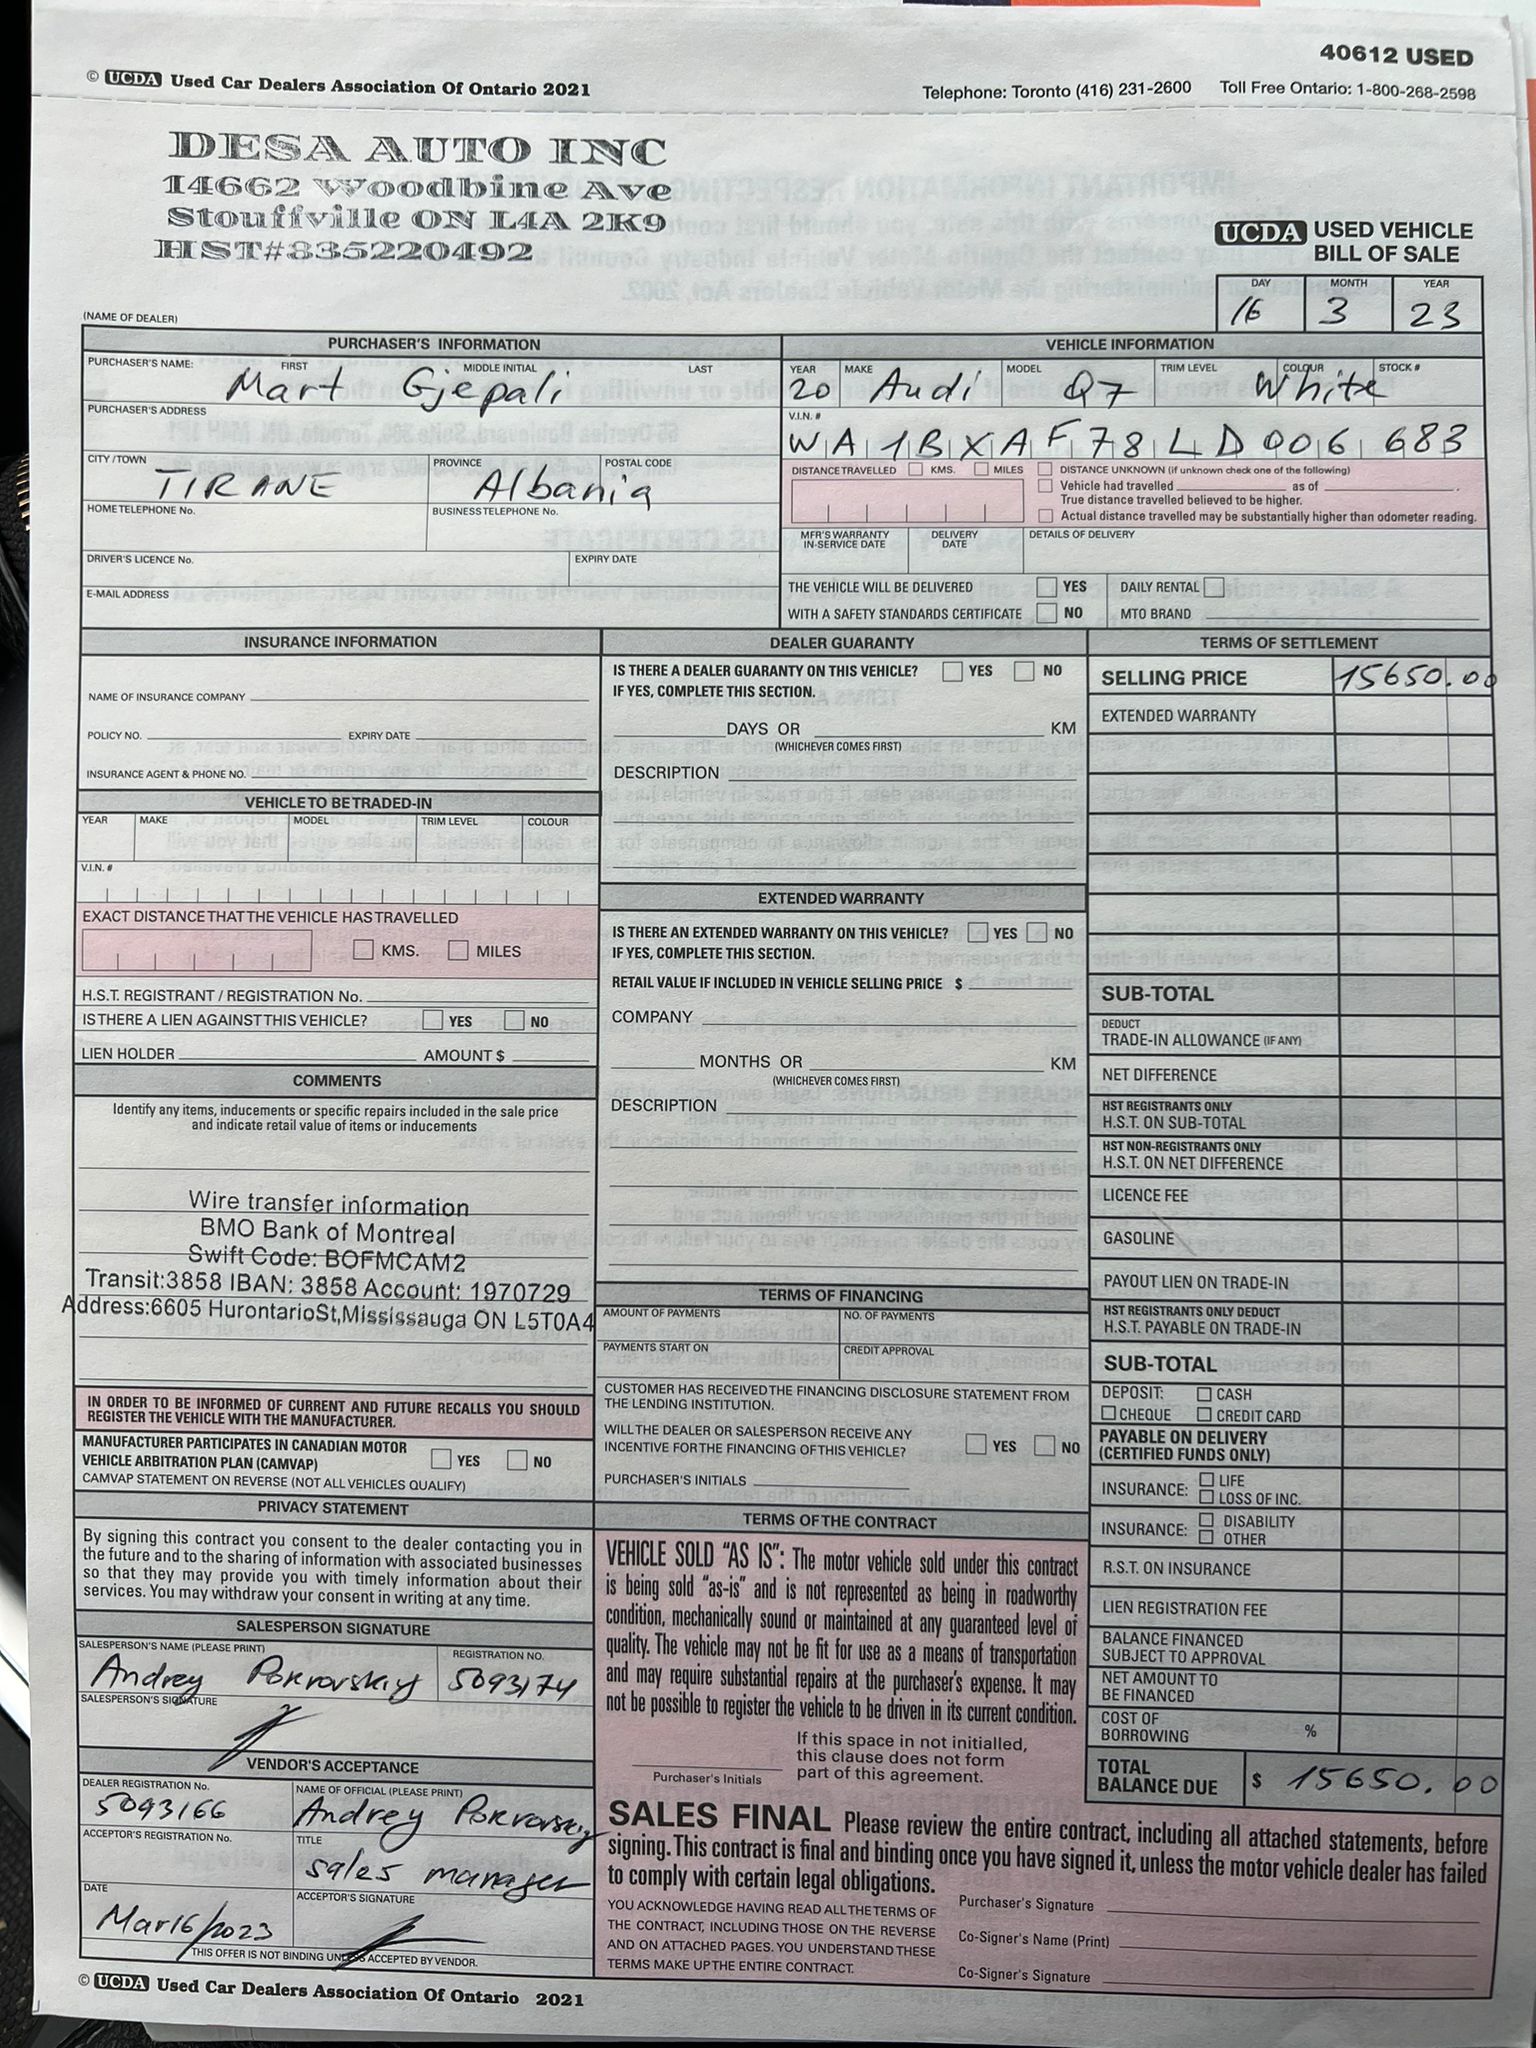 40612 USED
© UCDA Used Car Dealers Association Of Ontario 2021
Telephone: Toronto (416) 231-2600 Toll Free Ontario: 1-800-268-2598
DESA AUTO INC
14662 Woodbine Ave
Stouffville ON L4A 2K9
HST#835220492
UCDA USED VEHICLE
BILL OF SALE
DAY MONTH YEAR
16 3 23
(NAME OF DEALER)
PURCHASER'S INFORMATION
PURCHASER'S NAME: FIRST MIDDLE INITIAL LAST
Mart Gjepali
PURCHASER'S ADDRESS
CITY/TOWN PROVINCE POSTAL CODE
TIRANE Albania
HOME TELEPHONE No. BUSINESS TELEPHONE No.
DRIVER'S LICENCE No. EXPIRY DATE
E-MAIL ADDRESS
VEHICLE INFORMATION
YEAR MAKE MODEL TRIM LEVEL COLOUR STOCK #
20 Audi Q7 White
V.I.N. #
WA1BXAF78LD006683
DISTANCE TRAVELLED KMS. MILES
DISTANCE UNKNOWN (if unknown check one of the following)
Vehicle had travelled as of .
True distance travelled believed to be higher.
Actual distance travelled may be substantially higher than odometer reading.
MFR'S WARRANTY IN-SERVICE DATE DELIVERY DATE DETAILS OF DELIVERY
THE VEHICLE WILL BE DELIVERED YES DAILY RENTAL
WITH A SAFETY STANDARDS CERTIFICATE NO MTO BRAND
INSURANCE INFORMATION
NAME OF INSURANCE COMPANY
POLICY NO. EXPIRY DATE
INSURANCE AGENT & PHONE NO.
VEHICLE TO BE TRADED-IN
YEAR MAKE MODEL TRIM LEVEL COLOUR
V.I.N. #
EXACT DISTANCE THAT THE VEHICLE HAS TRAVELLED
KMS. MILES
H.S.T. REGISTRANT / REGISTRATION No.
IS THERE A LIEN AGAINST THIS VEHICLE? YES NO
LIEN HOLDER AMOUNT $
COMMENTS
Identify any items, inducements or specific repairs included in the sale price
and indicate retail value of items or inducements
Wire transfer information
BMO Bank of Montreal
Swift Code: BOFMCAM2
Transit:3858 IBAN: 3858 Account: 1970729
Address:6605 HurontarioSt,Mississauga ON L5T0A4
IN ORDER TO BE INFORMED OF CURRENT AND FUTURE RECALLS YOU SHOULD
REGISTER THE VEHICLE WITH THE MANUFACTURER.
MANUFACTURER PARTICIPATES IN CANADIAN MOTOR
VEHICLE ARBITRATION PLAN (CAMVAP) YES NO
CAMVAP STATEMENT ON REVERSE (NOT ALL VEHICLES QUALIFY)
PRIVACY STATEMENT
By signing this contract you consent to the dealer contacting you in
the future and to the sharing of information with associated businesses
so that they may provide you with timely information about their
services. You may withdraw your consent in writing at any time.
SALESPERSON SIGNATURE
SALESPERSON'S NAME (PLEASE PRINT) REGISTRATION NO.
Andrey Pokrovskiy 5093174
SALESPERSON'S SIGNATURE
VENDOR'S ACCEPTANCE
DEALER REGISTRATION No. NAME OF OFFICIAL (PLEASE PRINT)
5093166 Andrey Pokrovskiy
ACCEPTOR'S REGISTRATION No. TITLE
sales manager
DATE ACCEPTOR'S SIGNATURE
Mar16/2023
THIS OFFER IS NOT BINDING UNLESS ACCEPTED BY VENDOR.
DEALER GUARANTY
IS THERE A DEALER GUARANTY ON THIS VEHICLE? YES NO
IF YES, COMPLETE THIS SECTION.
DAYS OR KM
(WHICHEVER COMES FIRST)
DESCRIPTION
EXTENDED WARRANTY
IS THERE AN EXTENDED WARRANTY ON THIS VEHICLE? YES NO
IF YES, COMPLETE THIS SECTION.
RETAIL VALUE IF INCLUDED IN VEHICLE SELLING PRICE $
COMPANY
MONTHS OR KM
(WHICHEVER COMES FIRST)
DESCRIPTION
TERMS OF FINANCING
AMOUNT OF PAYMENTS NO. OF PAYMENTS
PAYMENTS START ON CREDIT APPROVAL
CUSTOMER HAS RECEIVED THE FINANCING DISCLOSURE STATEMENT FROM
THE LENDING INSTITUTION.
WILL THE DEALER OR SALESPERSON RECEIVE ANY
INCENTIVE FOR THE FINANCING OF THIS VEHICLE? YES NO
PURCHASER'S INITIALS
TERMS OF THE CONTRACT
VEHICLE SOLD "AS IS": The motor vehicle sold under this contract
is being sold "as-is" and is not represented as being in roadworthy
condition, mechanically sound or maintained at any guaranteed level of
quality. The vehicle may not be fit for use as a means of transportation
and may require substantial repairs at the purchaser's expense. It may
not be possible to register the vehicle to be driven in its current condition.
If this space in not initialled,
this clause does not form
part of this agreement.
Purchaser's Initials
TERMS OF SETTLEMENT
SELLING PRICE 15650.00
EXTENDED WARRANTY
SUB-TOTAL
DEDUCT
TRADE-IN ALLOWANCE (IF ANY)
NET DIFFERENCE
HST REGISTRANTS ONLY
H.S.T. ON SUB-TOTAL
HST NON-REGISTRANTS ONLY
H.S.T. ON NET DIFFERENCE
LICENCE FEE
GASOLINE
PAYOUT LIEN ON TRADE-IN
HST REGISTRANTS ONLY DEDUCT
H.S.T. PAYABLE ON TRADE-IN
SUB-TOTAL
DEPOSIT: CASH
CHEQUE CREDIT CARD
PAYABLE ON DELIVERY
(CERTIFIED FUNDS ONLY)
INSURANCE: LIFE
LOSS OF INC.
INSURANCE: DISABILITY
OTHER
R.S.T. ON INSURANCE
LIEN REGISTRATION FEE
BALANCE FINANCED
SUBJECT TO APPROVAL
NET AMOUNT TO
BE FINANCED
COST OF
BORROWING %
TOTAL
BALANCE DUE $ 15650.00
SALES FINAL Please review the entire contract, including all attached statements, before
signing. This contract is final and binding once you have signed it, unless the motor vehicle dealer has failed
to comply with certain legal obligations.
YOU ACKNOWLEDGE HAVING READ ALL THE TERMS OF
THE CONTRACT, INCLUDING THOSE ON THE REVERSE
AND ON ATTACHED PAGES. YOU UNDERSTAND THESE
TERMS MAKE UP THE ENTIRE CONTRACT.
Purchaser's Signature
Co-Signer's Name (Print)
Co-Signer's Signature
© UCDA Used Car Dealers Association Of Ontario 2021